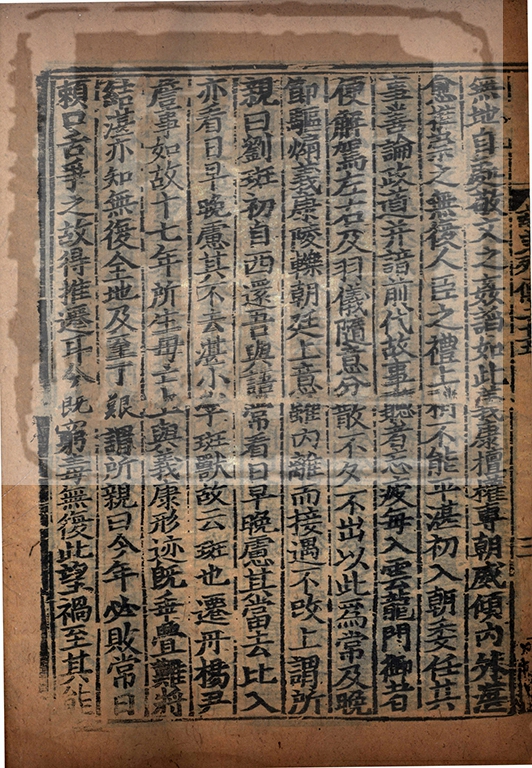 無地自處敬文之姦謟如此義康擅權專朝威傾内外湛
愈推崇之無復人臣之禮上稍不能平湛初入朝委任甚
重善論政道并諳前代故事聽者忘疲每入雲龍門御者
便解駕左右及羽儀隨意分散不夕不出以此爲常及晚
節驅煽義康陵轢朝廷上意雖内離而接遇不改上謂所
親曰劉班初自西還吾與語常看日早晚慮其當去比入
亦看日早晚慮其不去湛小字斑獸故云班也遷丹楊尹
詹事如故十七年所生母亡上與義康形迹旣乖釁難將
結湛亦知無復全地及至丁艱謂所親曰今年必敗常日
賴口舌爭之故得推遷耳今旣窮毒無復此望禍至其能